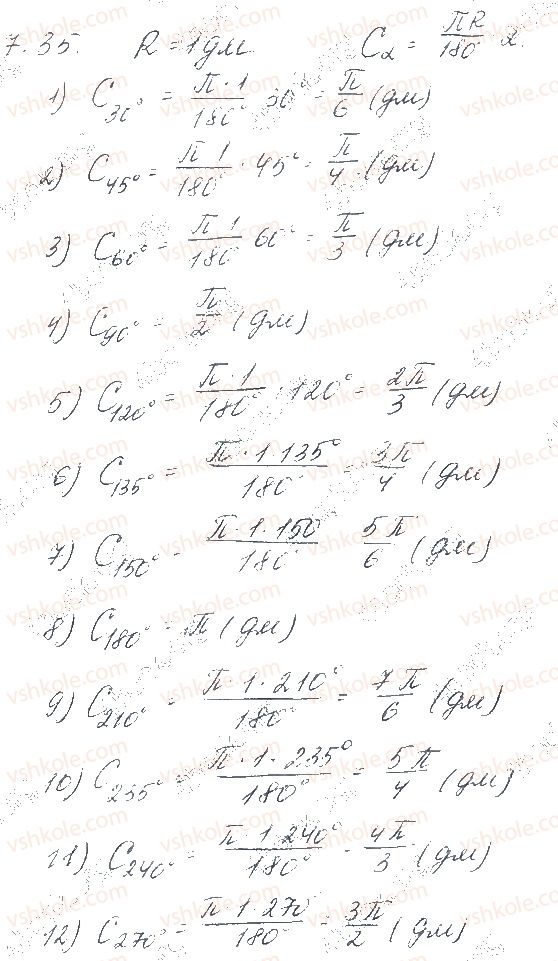 7.35. R = 1дм C₂ = πR/180° 2.
1) C₃₀° = π·1/180° 30° = π/6 (дм)
2) C₄₅° = π 1/180° · 45° = π/4 (дм)
3) C₆₀° = π 1/180° 60° = π/3 (дм)
4) C₉₀° = π/2 (дм)
5) C₁₂₀° = π·1/180° · 120° = 2π/3 (дм)
6) C₁₃₅° = π·1·135°/180° = 3π/4 (дм)
7) C₁₅₀° = π·1·150°/180° = 5π/6 (дм)
8) C₁₈₀° = π (дм)
9) C₂₁₀° = π·1·210°/180° = 7π/6 (дм)
10) C₂₃₅° = π·1·235°/180° = 5π/4 (дм)
11) C₂₄₀° = π·1·240°/180° = 4π/3 (дм)
12) C₂₇₀° = π·1·270/180° = 3π/2 (дм)
vshkole.com